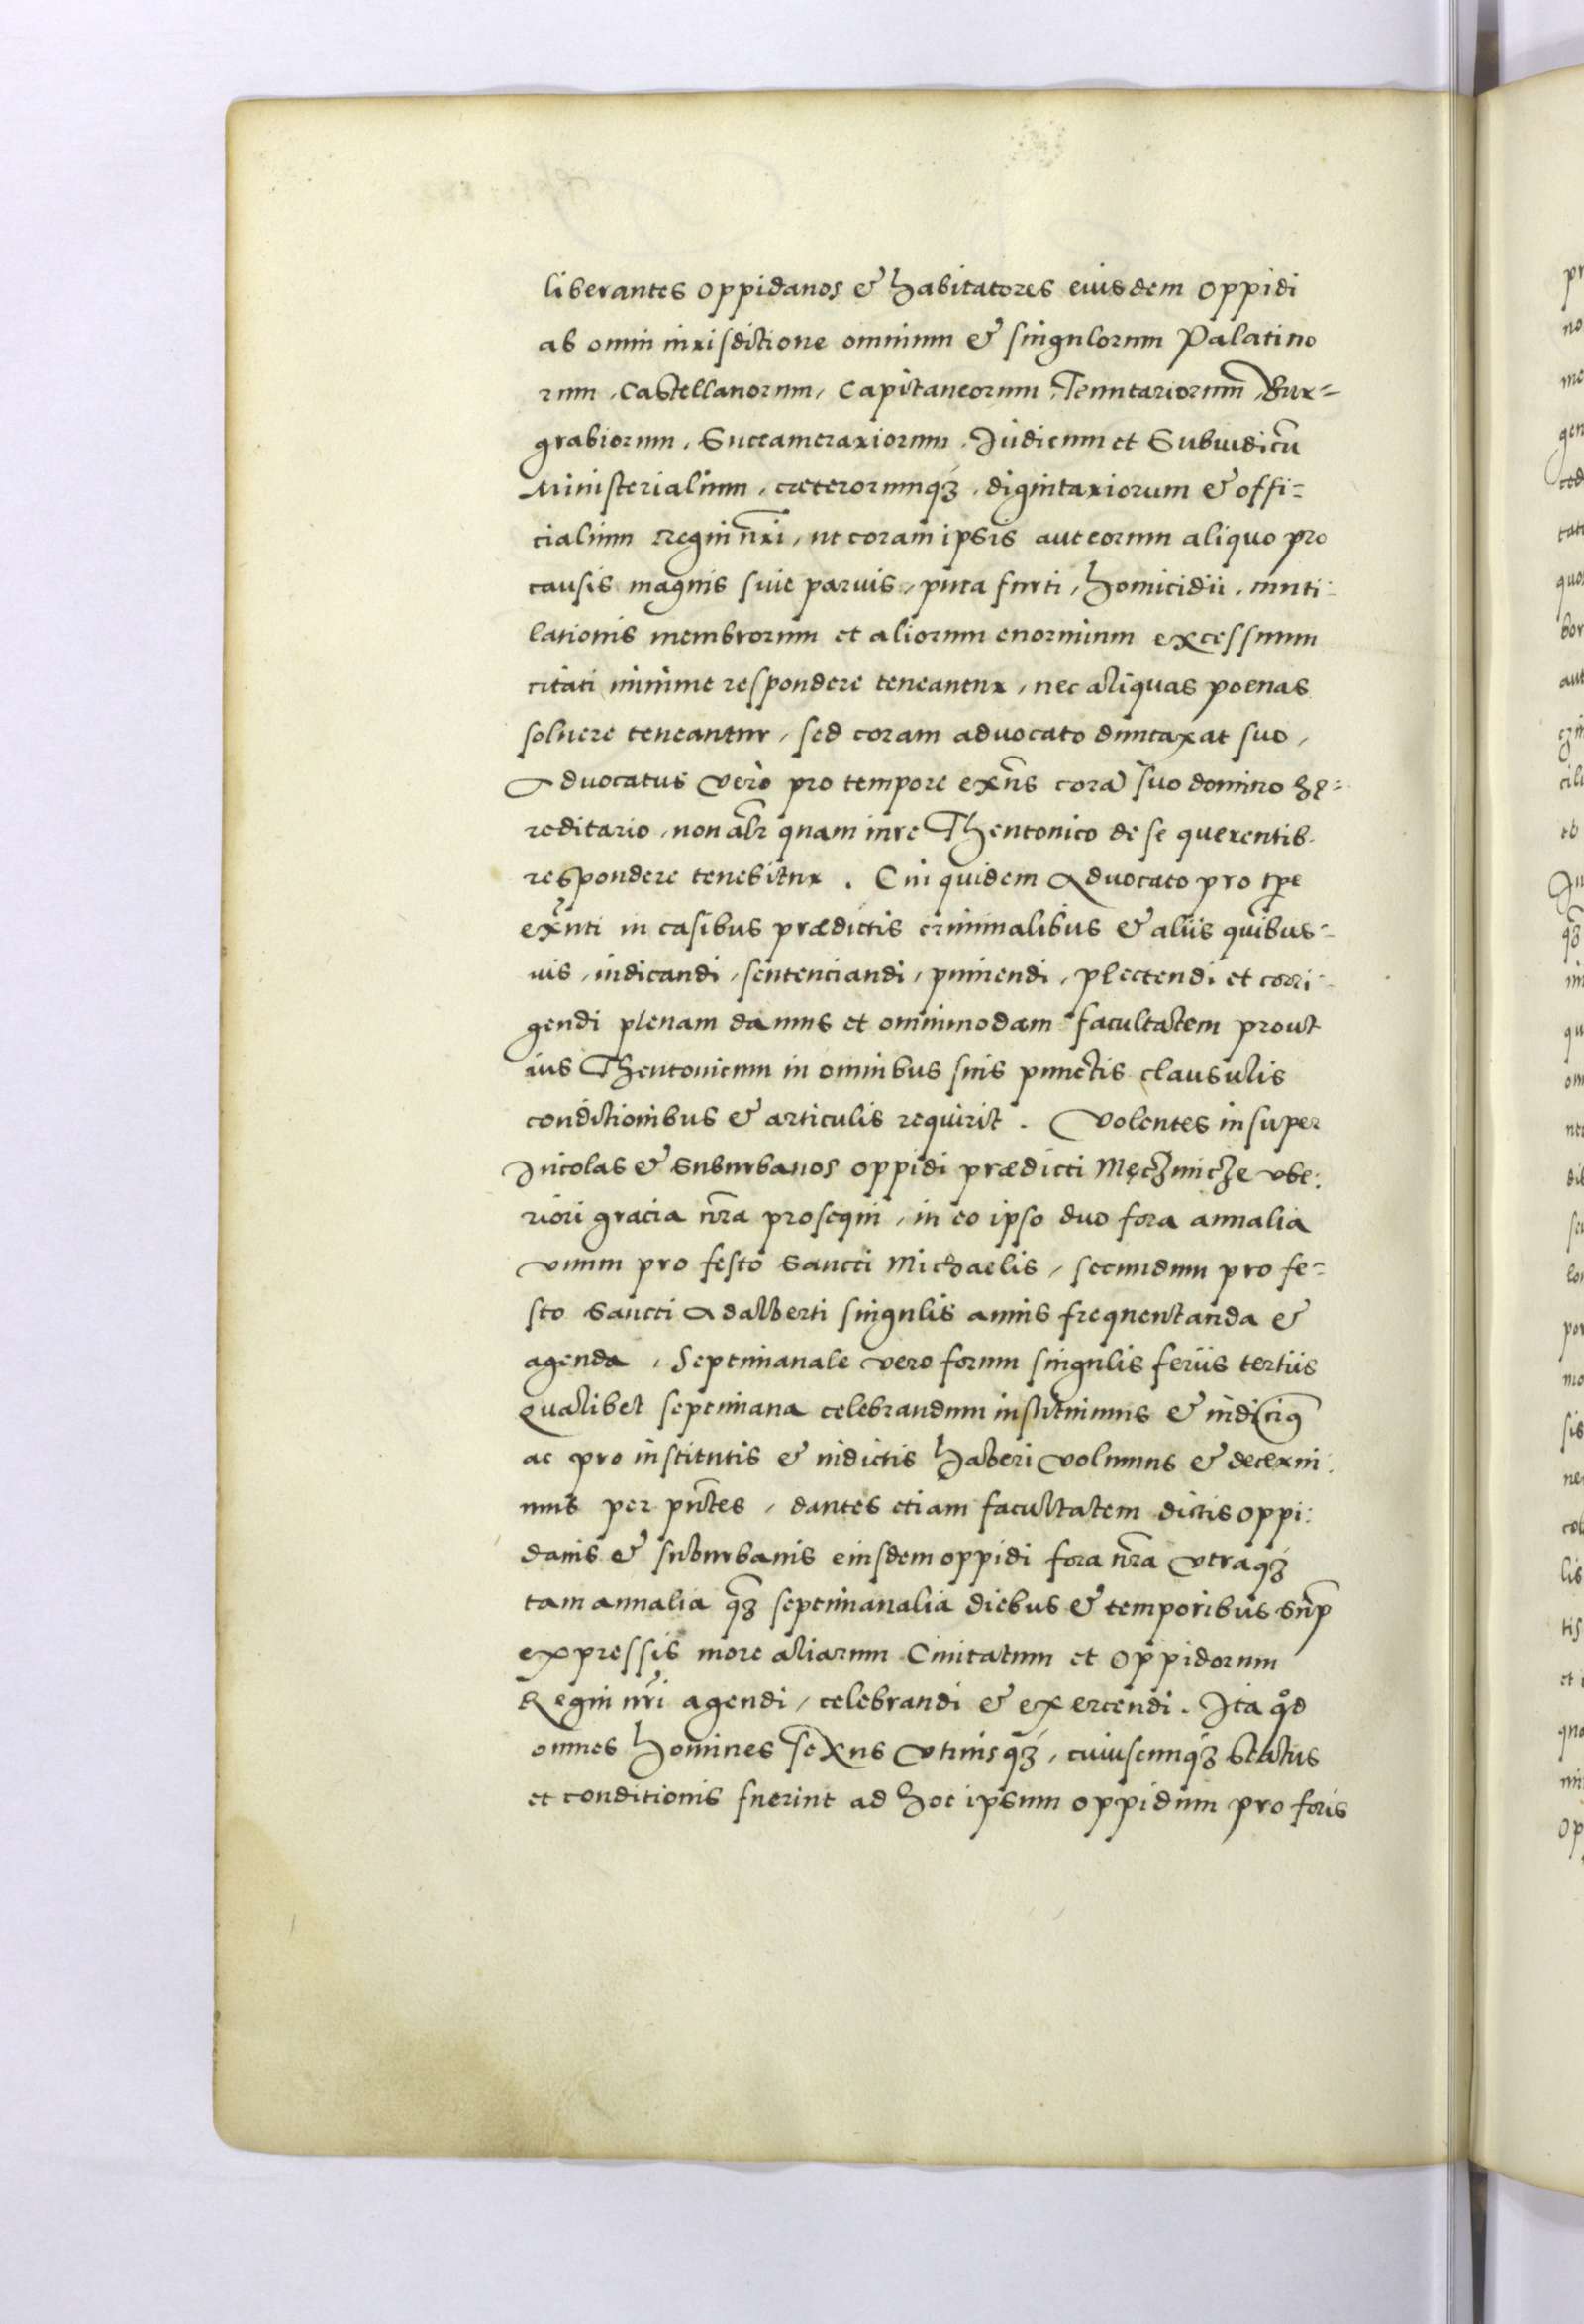 liberantes oppidanos & habitatores eiusdem oppidi
ab omni iurisdictione omnium & singulorum Palatino
rum, Castellanorum, Capitaneorum, Tenutariorum, Bur=
grabiorum, Succamerariorum, Judicum et Subiudicū
Ministerialium, cæterorumq₃, dignitariorum & offi=
cialium Regni nr̄i, ut coram ipsis aut eorum aliquo pro
causis magnis siue paruis, puta furti, homicidii, muti=
lationis membrorum et aliorum enormium excessuum
citati minime respondere teneantur, nec aliquas poenas
soluere teneantur, sed coram aduocato duntaxat suo,
Aduocatus verò pro tempore exn̄s corā suo domino hę=
reditario, non alr̄ quam iure Theutonico de se querentib.
respondere tenebitur. Cui quidem Aduocato pro tp̄e
exn̄ti in casibus prædictis criminalibus & aliis quibus=
uis, iudicandi, sentenciandi, puniendi, plectendi et corri=
gendi plenam damus et omnimodam facultatem prout
ius Theutonicum in omnibus suis punctis clausulis
conditionibus & articulis requirit. Volentes insuper
Incolas & suburbanos oppidi prædicti Męczmicze vbe=
riori gracia nr̄a prosequi, in eo ipso duo fora annalia
vnum pro festo sancti Michaelis, secundum pro fe=
sto sancti Adalberti singulis annis frequentanda &
agenda, Septimanale vero forum singulis feriis tertiis
qualibet septimana celebrandum instituimus & indicim9
ac pro institutis & indictis haberi volumus & decerni=
mus per pn̄tes, dantes etiam facultatem dictis oppi=
danis & suburbanis eiusdem oppidi fora nr̄a vtraq₃
tam annalia q̄₃ septimanalia diebus & temporibus sup̄
expressis more aliarum Ciuitatum et oppidorum
Regni nr̄i agendi, celebrandi & exercendi. Ita q̊d
omnes homines sexus vtriusq₃, cuiuscunq₃ status
et conditionis fuerint ad hoc ipsum oppidum pro foris